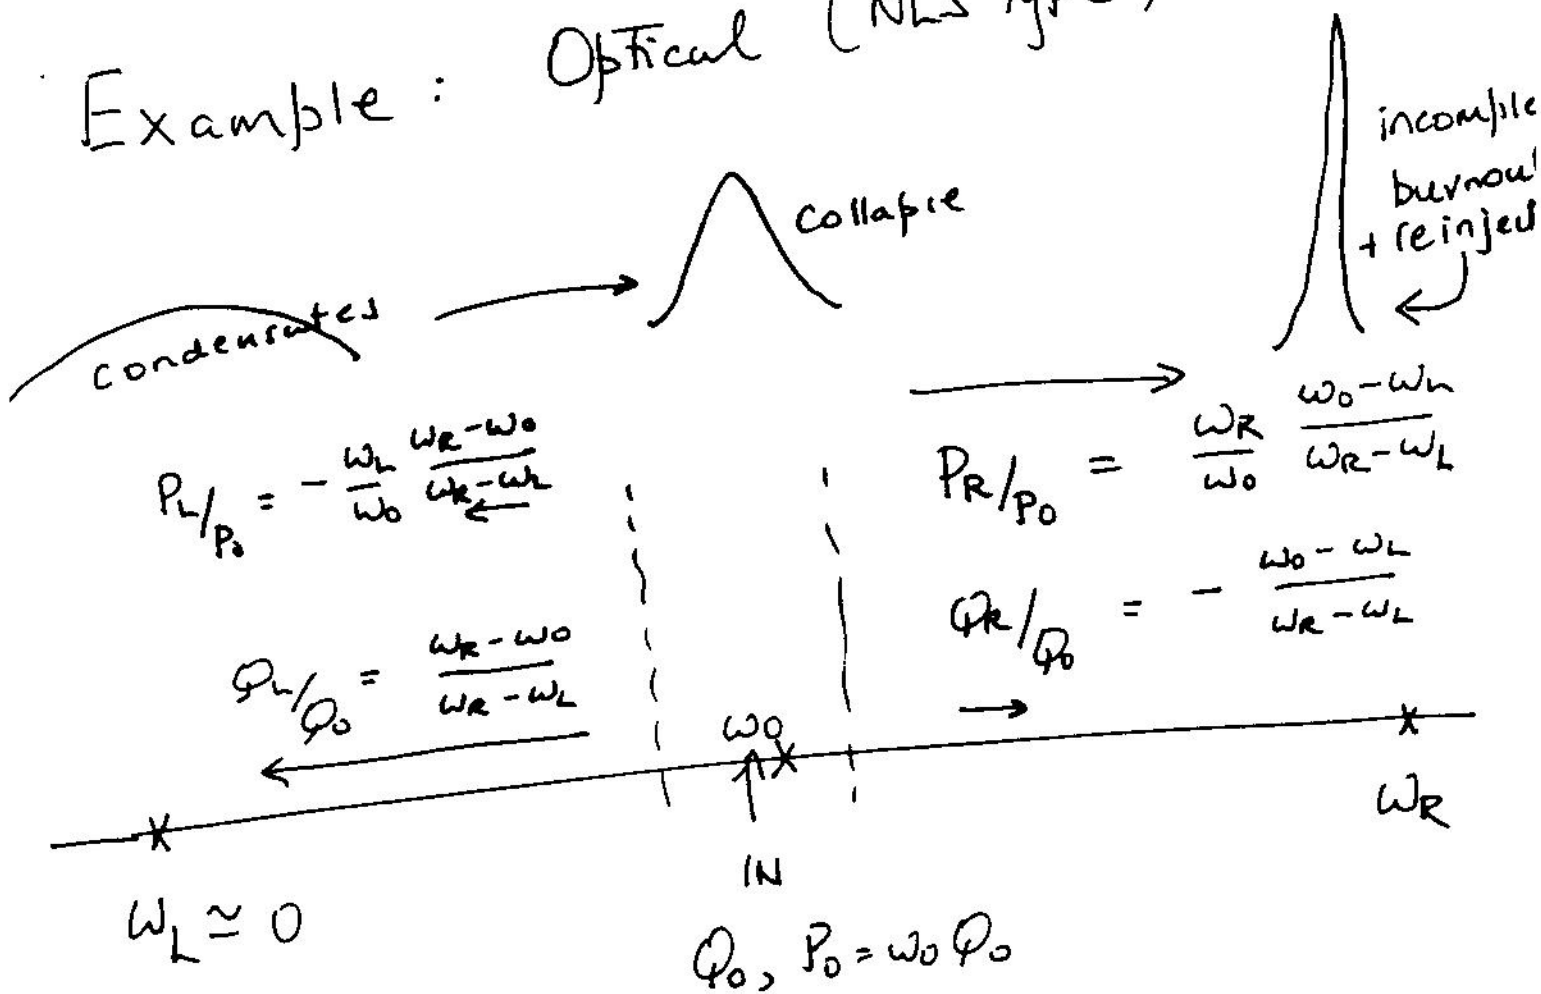 Example : Optical (NLS type)
incomple
burnou
+ reinject
Collapse
Condensates
P_L/P_0 = - ω_L/ω_0 (ω_R-ω_0)/(ω_R-ω_L)
P_R/P_0 = ω_R/ω_0 (ω_0-ω_L)/(ω_R-ω_L)
Q_L/Q_0 = (ω_R-ω_0)/(ω_R-ω_L)
Q_R/Q_0 = - (ω_0-ω_L)/(ω_R-ω_L)
ω_0
ω_R
IN
ω_L ≃ 0
Q_0, P_0 = ω_0 Q_0